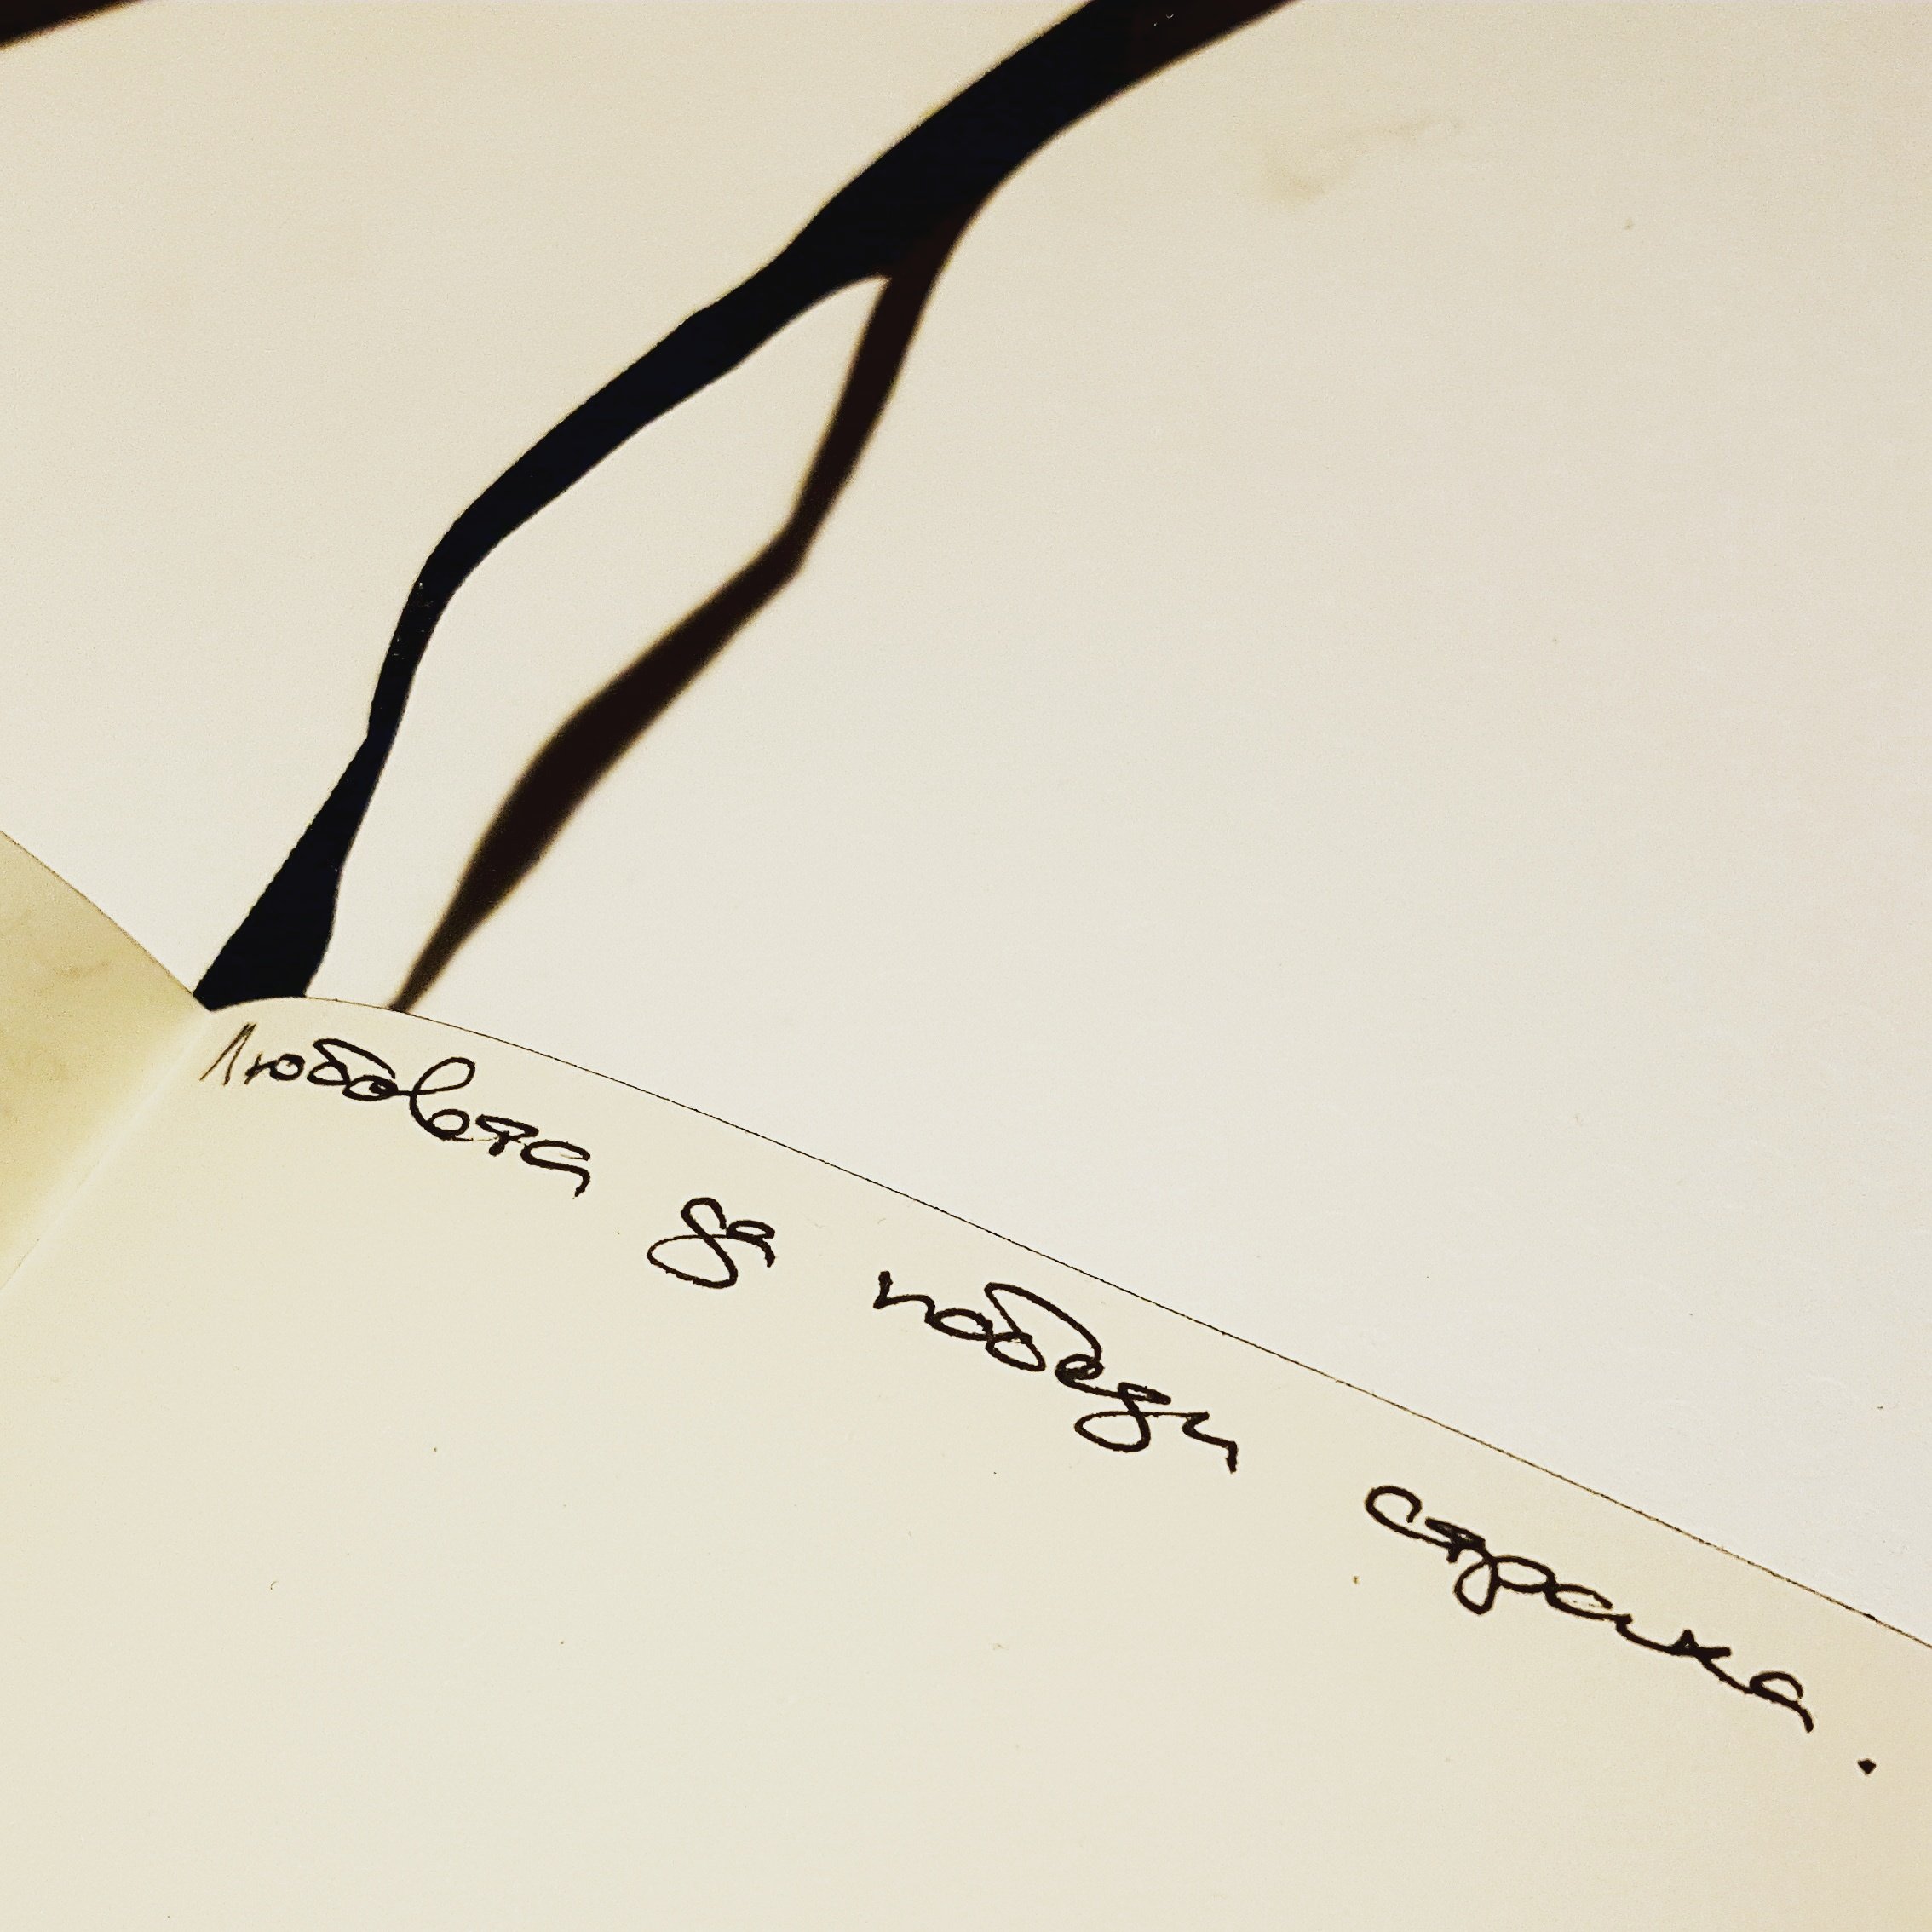 Любовта да победи страха.